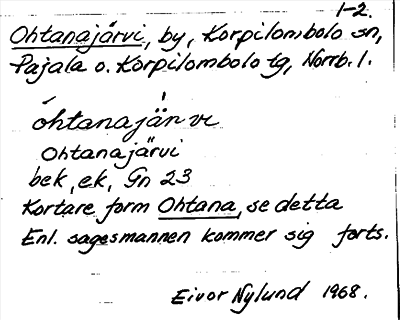 1-2.
Ohtanajärvi, by, Korpilombolo sn,
Pajala o. Korpilombolo tg, Norrb. l.
óhtanajärve
Ohtanajärvi
bek, ek, Gn 23
Kortare form Ohtana, se detta
Enl. sagesmannen kommer sig forts.
Eivor Nylund 1968.